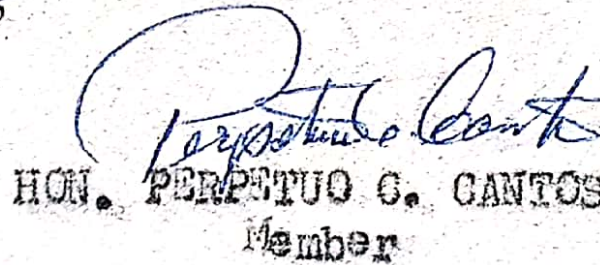 Perpetuo Cantos
HON. PERPETUO C. CANTOS
Member